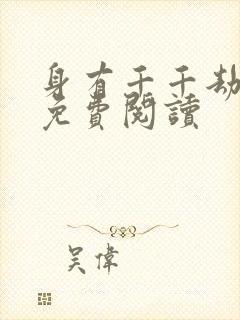 身有千千劫
免費閱讀
吴偉